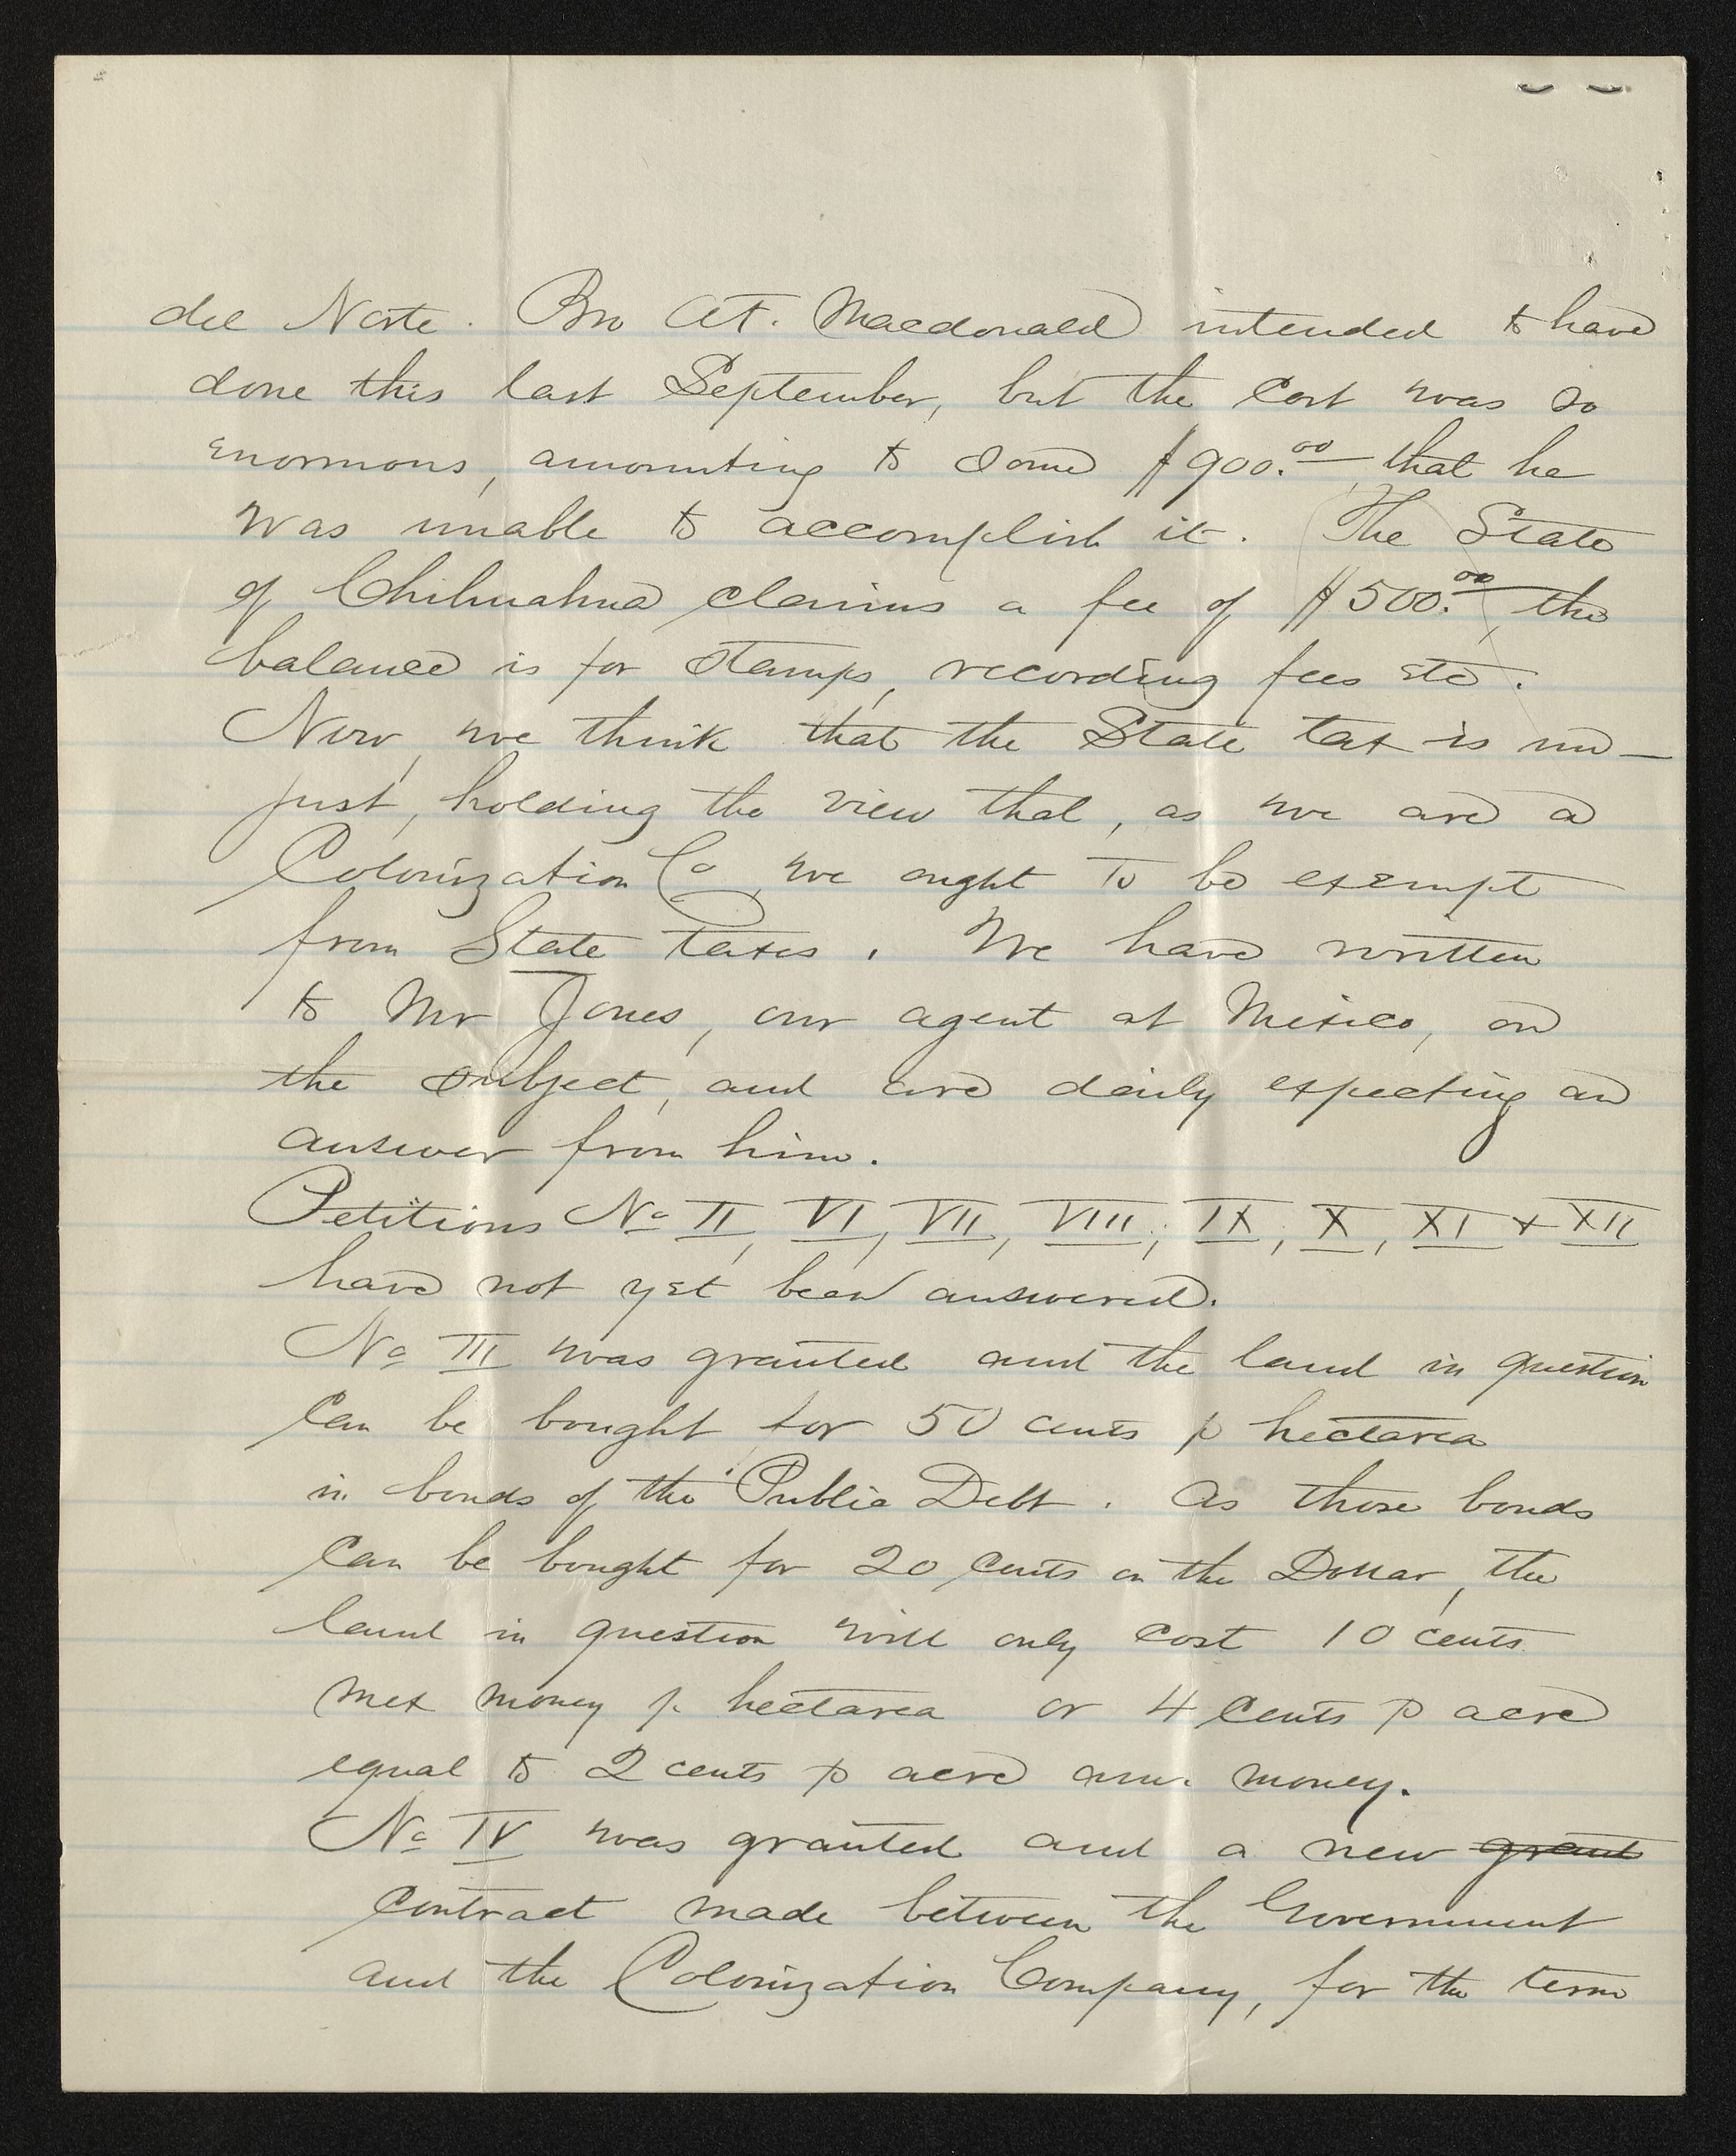 del Norte. Bro A.F. Macdonald intended to have
done this last September, but the cost was so
enormous, amounting to some $900.00 that he
was unable to accomplish it. The State
of Chihuahua claims a fee of $500.00, the
balance is for stamps, recording fees etc.
Now, we think that the State tax is un-
just, holding the view that, as we are a
Colonization Co, we ought to be exempt
from State taxes. We have written
to Mr Jones, our agent at Mexico, on
the subject, and are daily expecting an
answer from him.
Petitions No II, VI, VII, VIII, IX, X, XI & XII
have not yet been answered.
No III was granted and the land in question
can be bought for 50 cents p hectarea
in bonds of the Public Debt. As those bonds
can be bought for 20 cents on the Dollar, the
land in question will only cost 10 cents
Mex money p. hectarea or 4 cents p acre
equal to 2 cents p acre am. money.
No IV was granted and a new grant
contract made between the Government
and the Colonization Company, for the term